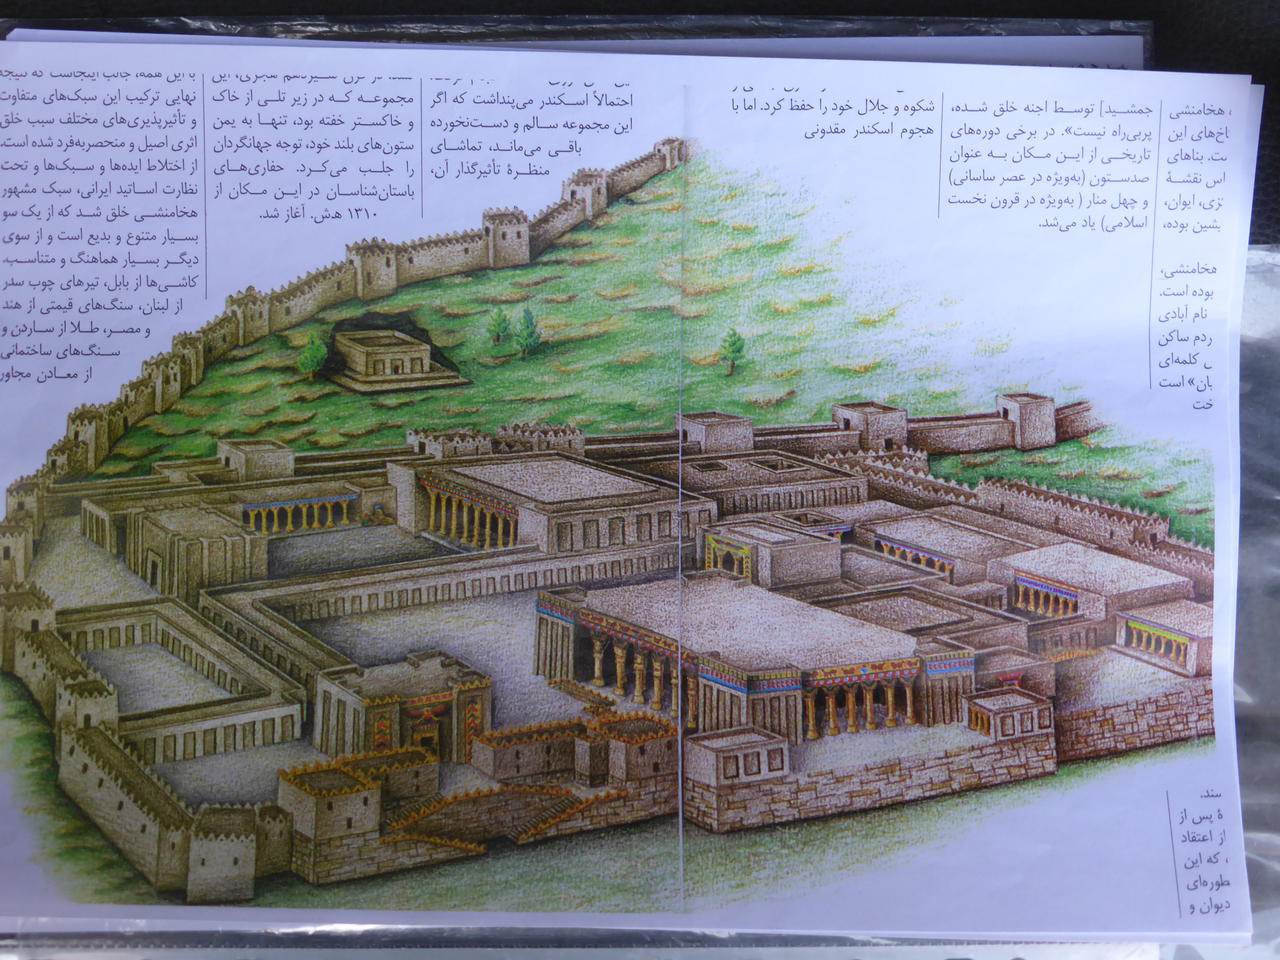 ، هخامنشی
اخ‌های این
ت. بناهای
اس نقشهٔ
زی، ایوان،
یشین بوده،
هخامنشی،
بوده است.
نام آبادی
ردم ساکن
کلمه‌ای
بان» است
خت
ند.
هٔ پس از
از اعتقاد
، که این
طوره‌ای
دیوان و
جمشید] توسط اجنه خلق شده،
پربی‌راه نیست». در برخی دوره‌های
تاریخی از این مکان به عنوان
صدستون (به‌ویژه در عصر ساسانی)
و چهل منار ( به‌ویژه در قرون نخست
اسلامی) یاد می‌شد.
شکوه و جلال خود را حفظ کرد. اما با
هجوم اسکندر مقدونی
احتمالاً اسکندر می‌پنداشت که اگر
این مجموعه سالم و دست‌نخورده
باقی می‌ماند، تماشای
منظرهٔ تأثیرگذار آن،
شده، در قرن سیزدهم هجری، این
مجموعه که در زیر تلی از خاک
و خاکستر خفته بود، تنها به یمن
ستون‌های بلند خود، توجه جهانگردان
را جلب می‌کرد. حفاری‌های
باستان‌شناسان در این مکان از
۱۳۱۰ ه‍.ش. آغاز شد.
با این همه، جالب اینجاست که نتیجه
نهایی ترکیب این سبک‌های متفاوت
و تأثیرپذیری‌های مختلف سبب خلق
اثری اصیل و منحصربه‌فرد شده است.
از اختلاط ایده‌ها و سبک‌ها و تحت
نظارت اساتید ایرانی، سبک مشهور
هخامنشی خلق شد که از یک سو
بسیار متنوع و بدیع است و از سوی
دیگر بسیار هماهنگ و متناسب.
کاشی‌ها از بابل، تیرهای چوب سدر
از لبنان، سنگ‌های قیمتی از هند
و مصر، طلا از ساردن و
سنگ‌های ساختمانی
از معادن مجاور